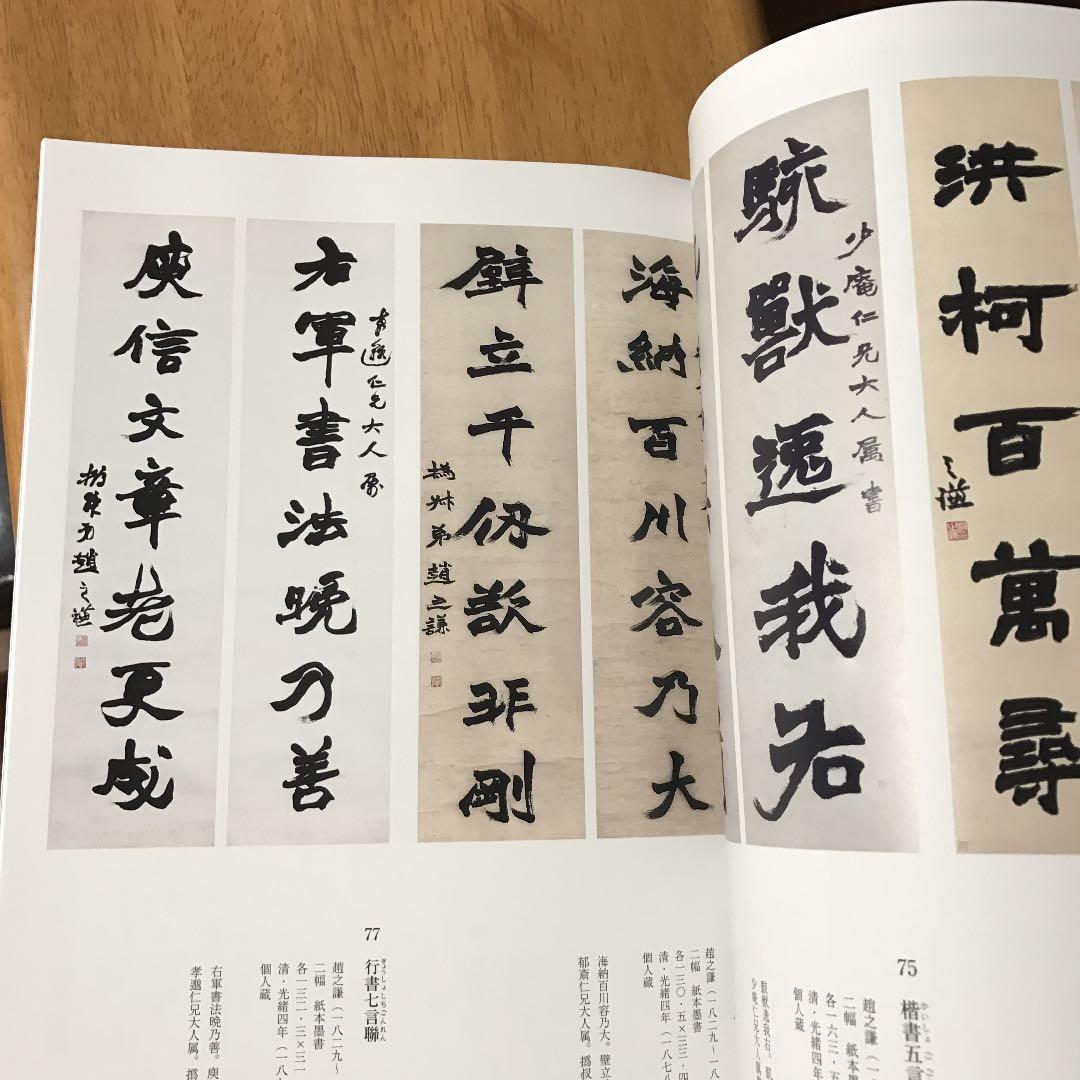 洪柯百萬尋
之謙
少庵仁兄大人属書
駭獸逸我右
海納百川容乃大
壁立千仞欲非剛
撝叔弟趙之謙
孝邈仁兄大人属
右軍書法晚乃善
庾信文章老更成
撝叔弟趙之謙
75
楷書五言
かいしょご
趙之謙(一
二幅 紙本墨書
各一六三・五
清・光緒四年
個人蔵
駭獣逸我右。
少庵仁兄大人属
趙之謙(一八二九〜一
二幅 紙本墨書
各一三〇・五×三三・四
清・光緒四年(一八七八
個人蔵
海納百川容乃大。壁立
郁斎仁兄大人属。
77
行書七言聯
ぎょうしょしちごんれん
趙之謙(一八二九〜
二幅 紙本墨書
各一三一・三×三一・
清・光緒四年(一八
個人蔵
右軍書法晩乃善。庾
孝邈仁兄大人属。撝